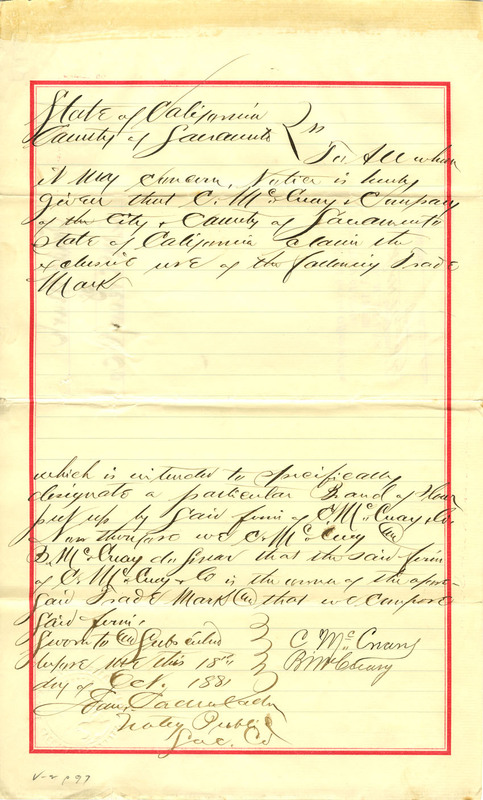 State of California
County of Sacramento } ss
To All whom
it May Concern, Notice is hereby
Given that C. McCreary & Company
of the City & County of Sacramento
State of California claim the
exclusive use of the following Trade
Mark
which is intended to specifically
designate a particular Brand of Flour
put up by said firm of C. McCreary & Co.
Now therefore we C. McCreary and
B. McCreary do swear that the said firm
of C. McCreary & Co is the owner of the afore-
said Trade Mark and that we compose
said firm.
Sworn to and Subscribed
before me this 18th
day of Oct. 1881
C McCreary
B McCreary
Notary Public
Sac. Co
V-2 p 97